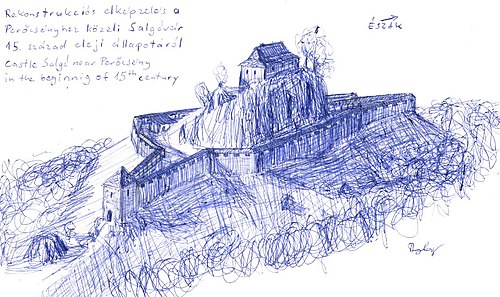 Rekonstrukciós elképzelés a
Perőcsényhez közeli Salgóvár
15. század eleji állapotáról
Castle Salgó near Perőcsény
in the beginnig of 15th century
Észak